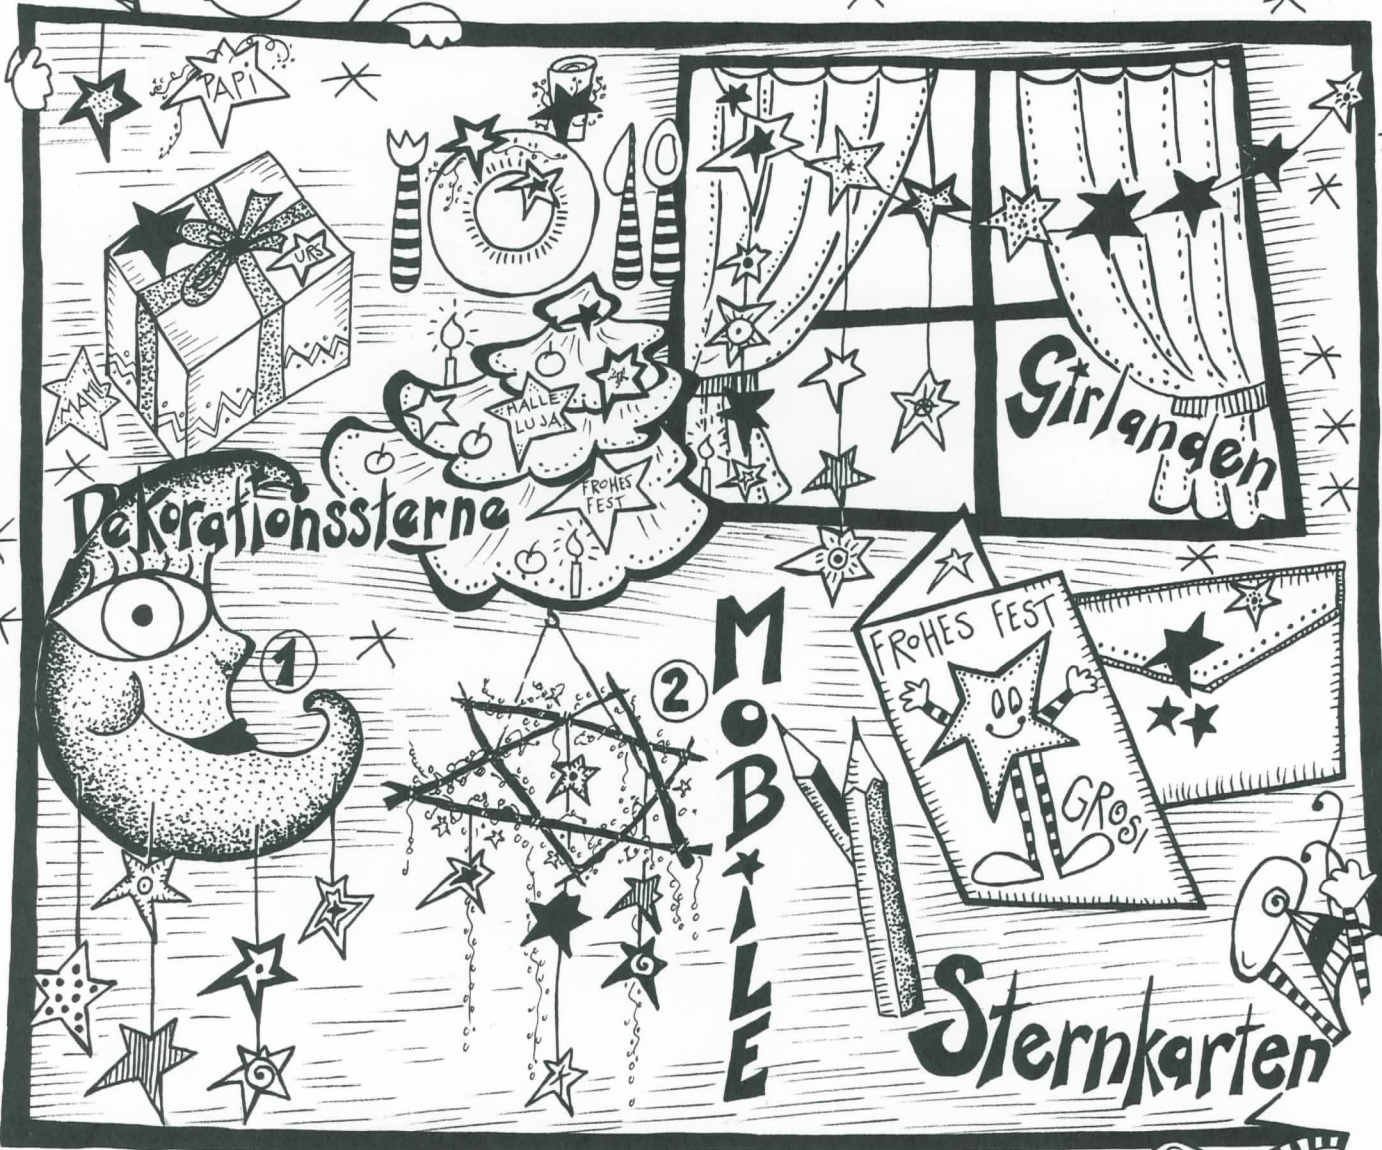 PAPI
URS
MAMI
HALLE
LUJA
FROHES
FEST
Dekorationssterne
Girlanden
1
2
MOBILE
FROHES FEST
GROSI
Sternkarten